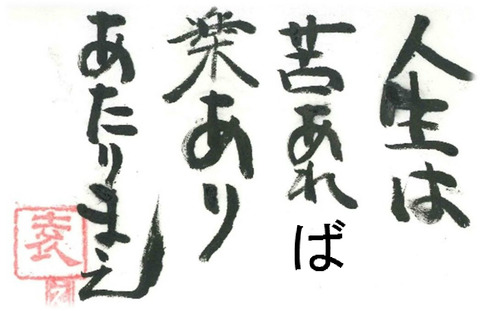 人生は
苦あれば
楽あり
あたりまえ